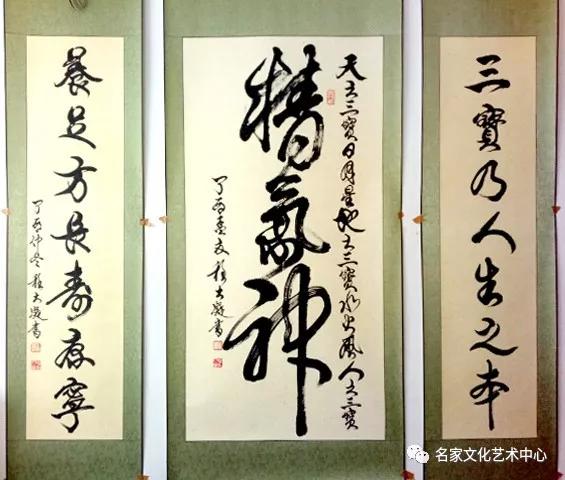 三寶乃人生之本
天之三寶日月星地之三寶水火風人之三寶
精氣神
丁酉
養足方長壽康寧
丁酉仲冬
名家文化艺术中心